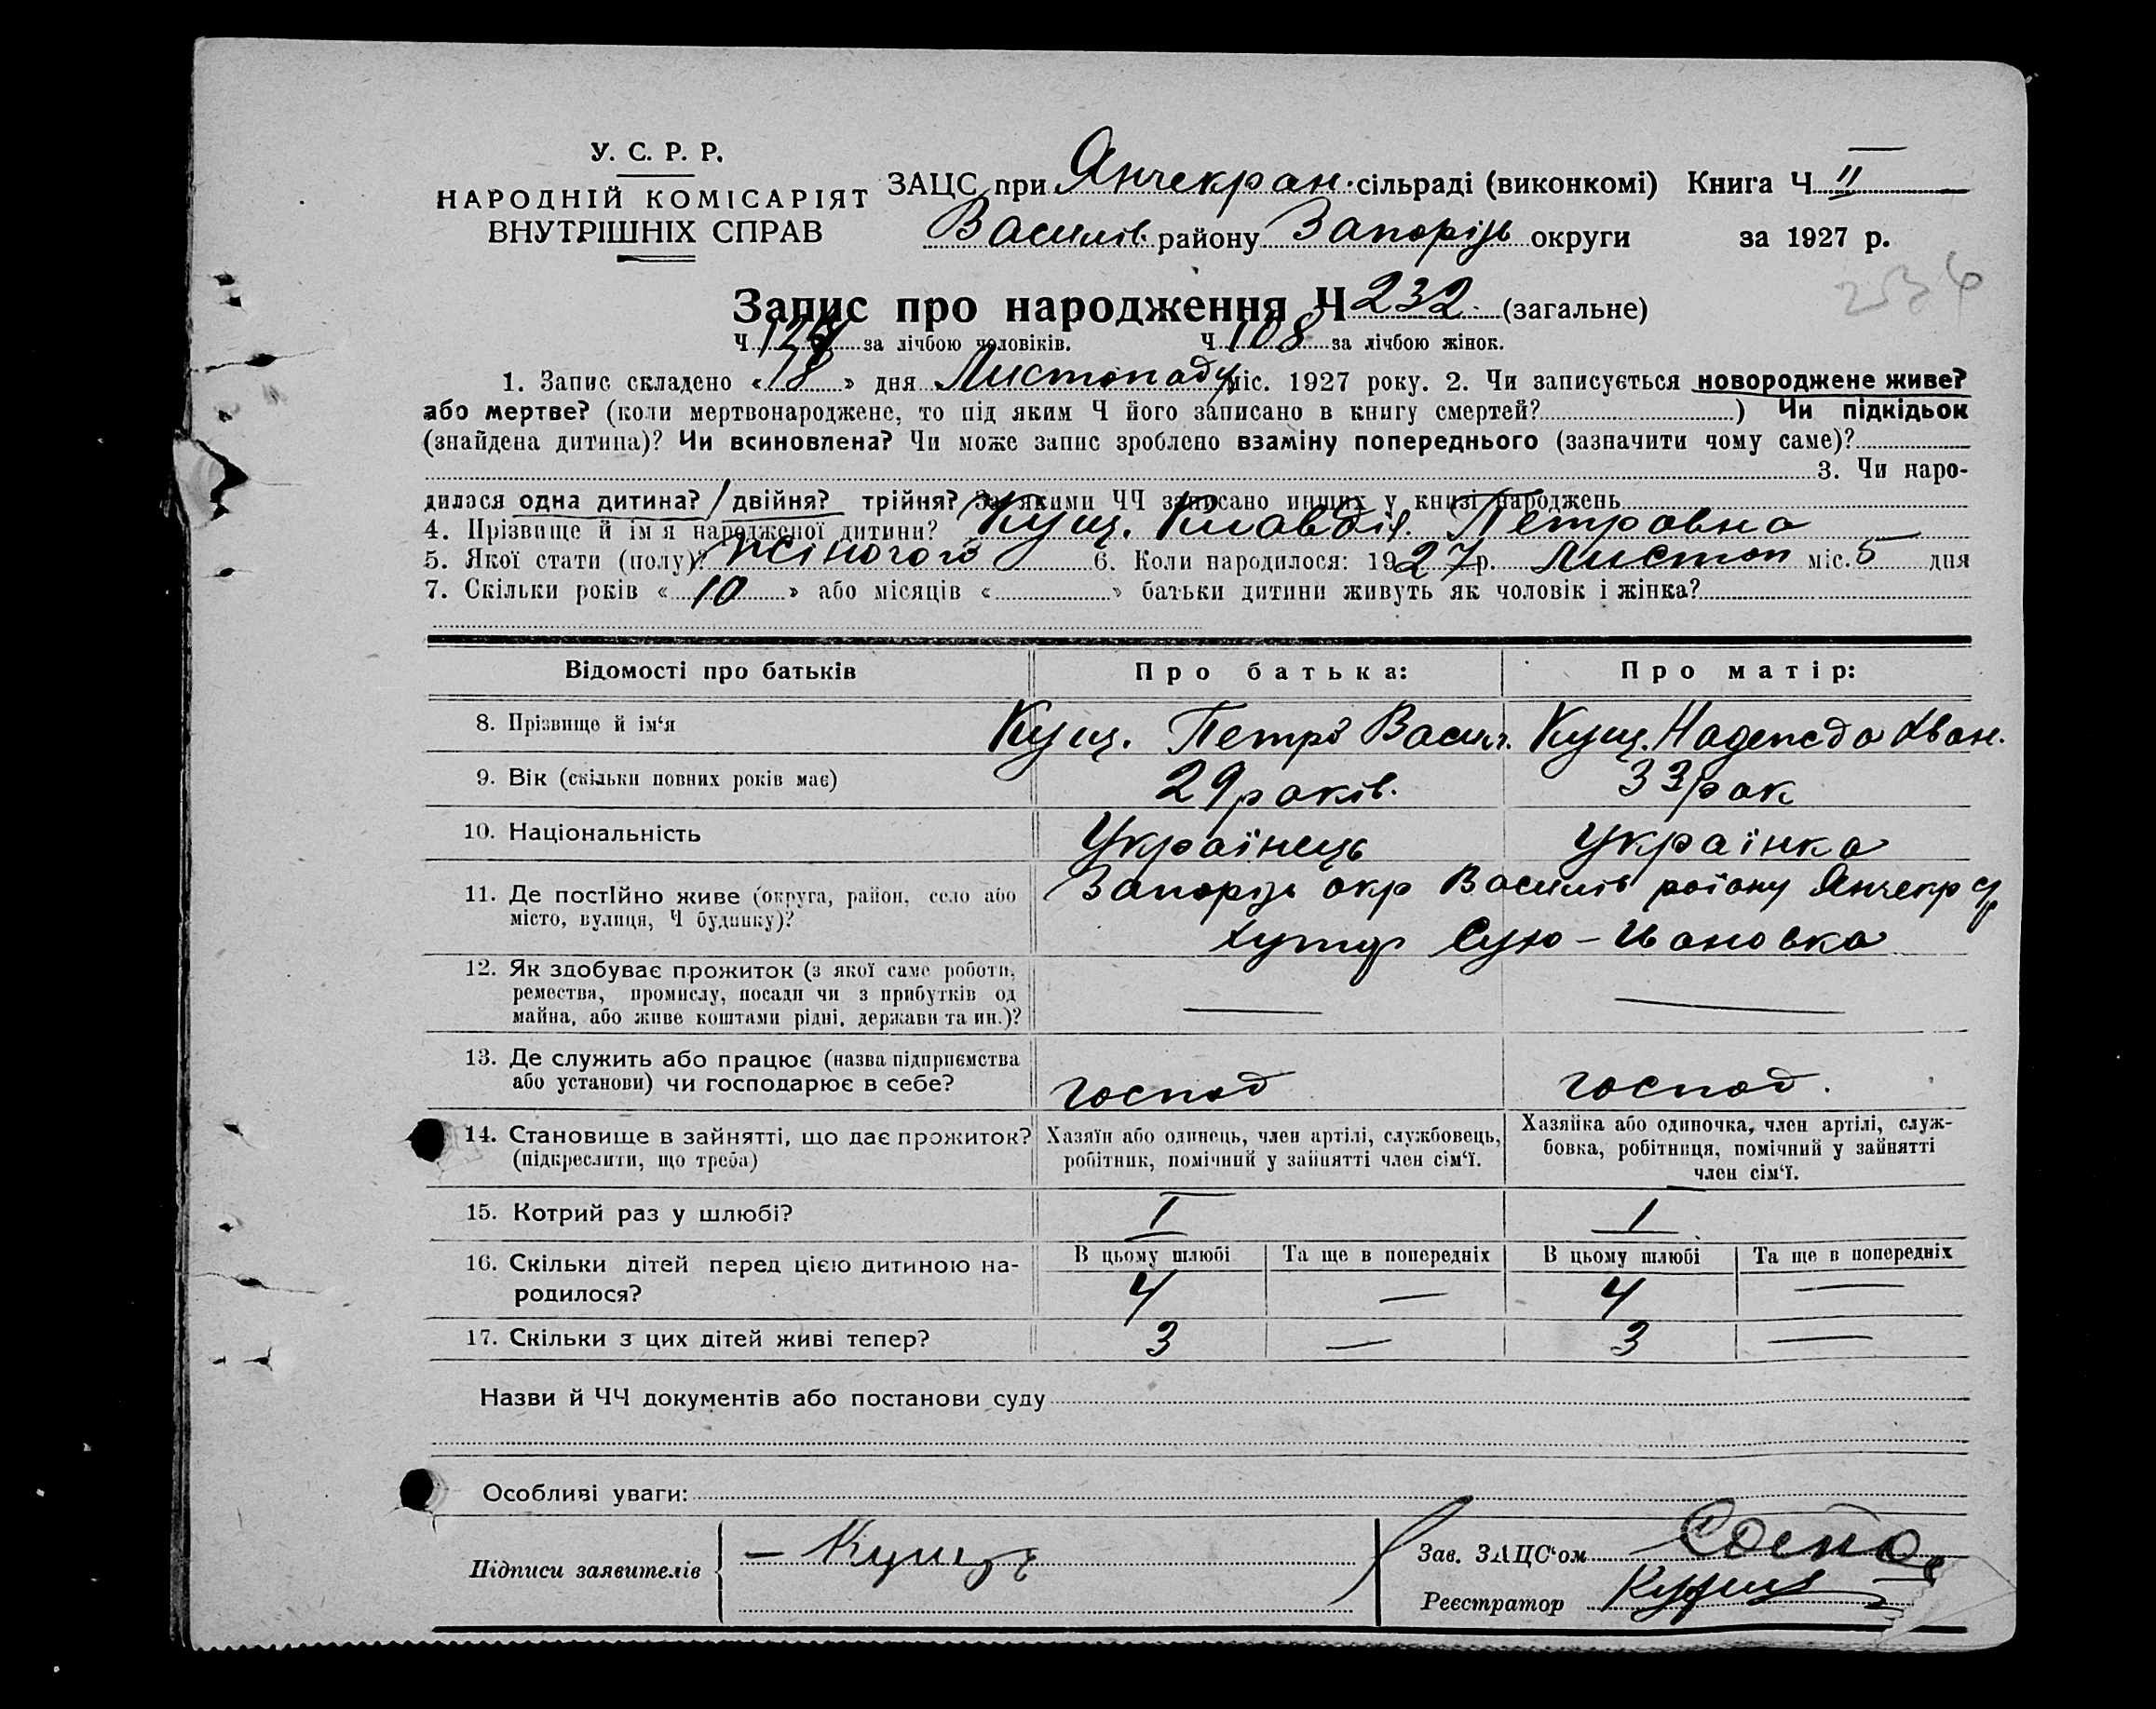 У. С. Р. Р.
НАРОДНІЙ КОМІСАРІЯТ
ВНУТРІШНІХ СПРАВ
ЗАЦС при Янчекран. сільраді (виконкомі) Книга Ч II
Василів. району Запоріж округи за 1927 р.
Запис про народження Ч 232 (загальне)
Ч 124 за лічбою чоловіків. Ч 108 за лічбою жінок.
1. Запис складено « 18 » дня Листопаду міс. 1927 року. 2. Чи записується новороджене живе?
або мертве? (коли мертвонароджене, то під яким Ч його записано в книгу смертей? ) Чи підкідьок
(знайдена дитина)? Чи всиновлена? Чи може запис зроблено взаміну попереднього (зазначити чому саме)?
3. Чи наро-
дилася одна дитина? / двійня? трійня? За якими ЧЧ записано инших у книзі народжень
4. Прізвище й ім я народженої дитини? Кущ. Клавдія. Петровна
5. Якої стати (полу)? жіночого 6. Коли народилося: 1927 р. Листоп міс. 5 дня
7. Скільки років « 10 » або місяців « » батьки дитини живуть як чоловік і жінка?
Відомості про батьків Про батька: Про матір:
8. Прізвище й ім‘я Кущ. Петро Васил. Кущ. Надежда Иван.
9. Вік (скільки повних років має) 29 років. 33 рок
10. Національність Українець Українка
11. Де постійно живе (округа, район, село або
місто, вулиця, Ч будинку)?
Запоріж окр Василів району Янчекр с/р
хутор Сухо-Ивановка
12. Як здобуває прожиток (з якої саме роботи,
ремества, промислу, посади чи з прибутків од
майна, або живе коштами рідні, держави та ин.)?
13. Де служить або працює (назва підприємства
або установи) чи господарює в себе?
господ господ.
14. Становище в зайнятті, що дає прожиток?
(підкреслити, що треба)
Хазяїн або одинець, член артілі, службовець,
робітник, помічний у зайнятті член сім‘ї.
Хазяйка або одиночка, член артілі, служ-
бовка, робітниця, помічний у зайнятті
член сім‘ї.
15. Котрий раз у шлюбі? I 1
16. Скільки дітей перед цією дитиною на-
родилося?
В цьому шлюбі Та ще в попередніх В цьому шлюбі Та ще в попередніх
4 — 4 —
17. Скільки з цих дітей живі тепер? 3 — 3 —
Назви й ЧЧ документів або постанови суду
Особливі уваги:
Підписи заявителів
Зав. ЗАЦС‘ом
Реєстратор